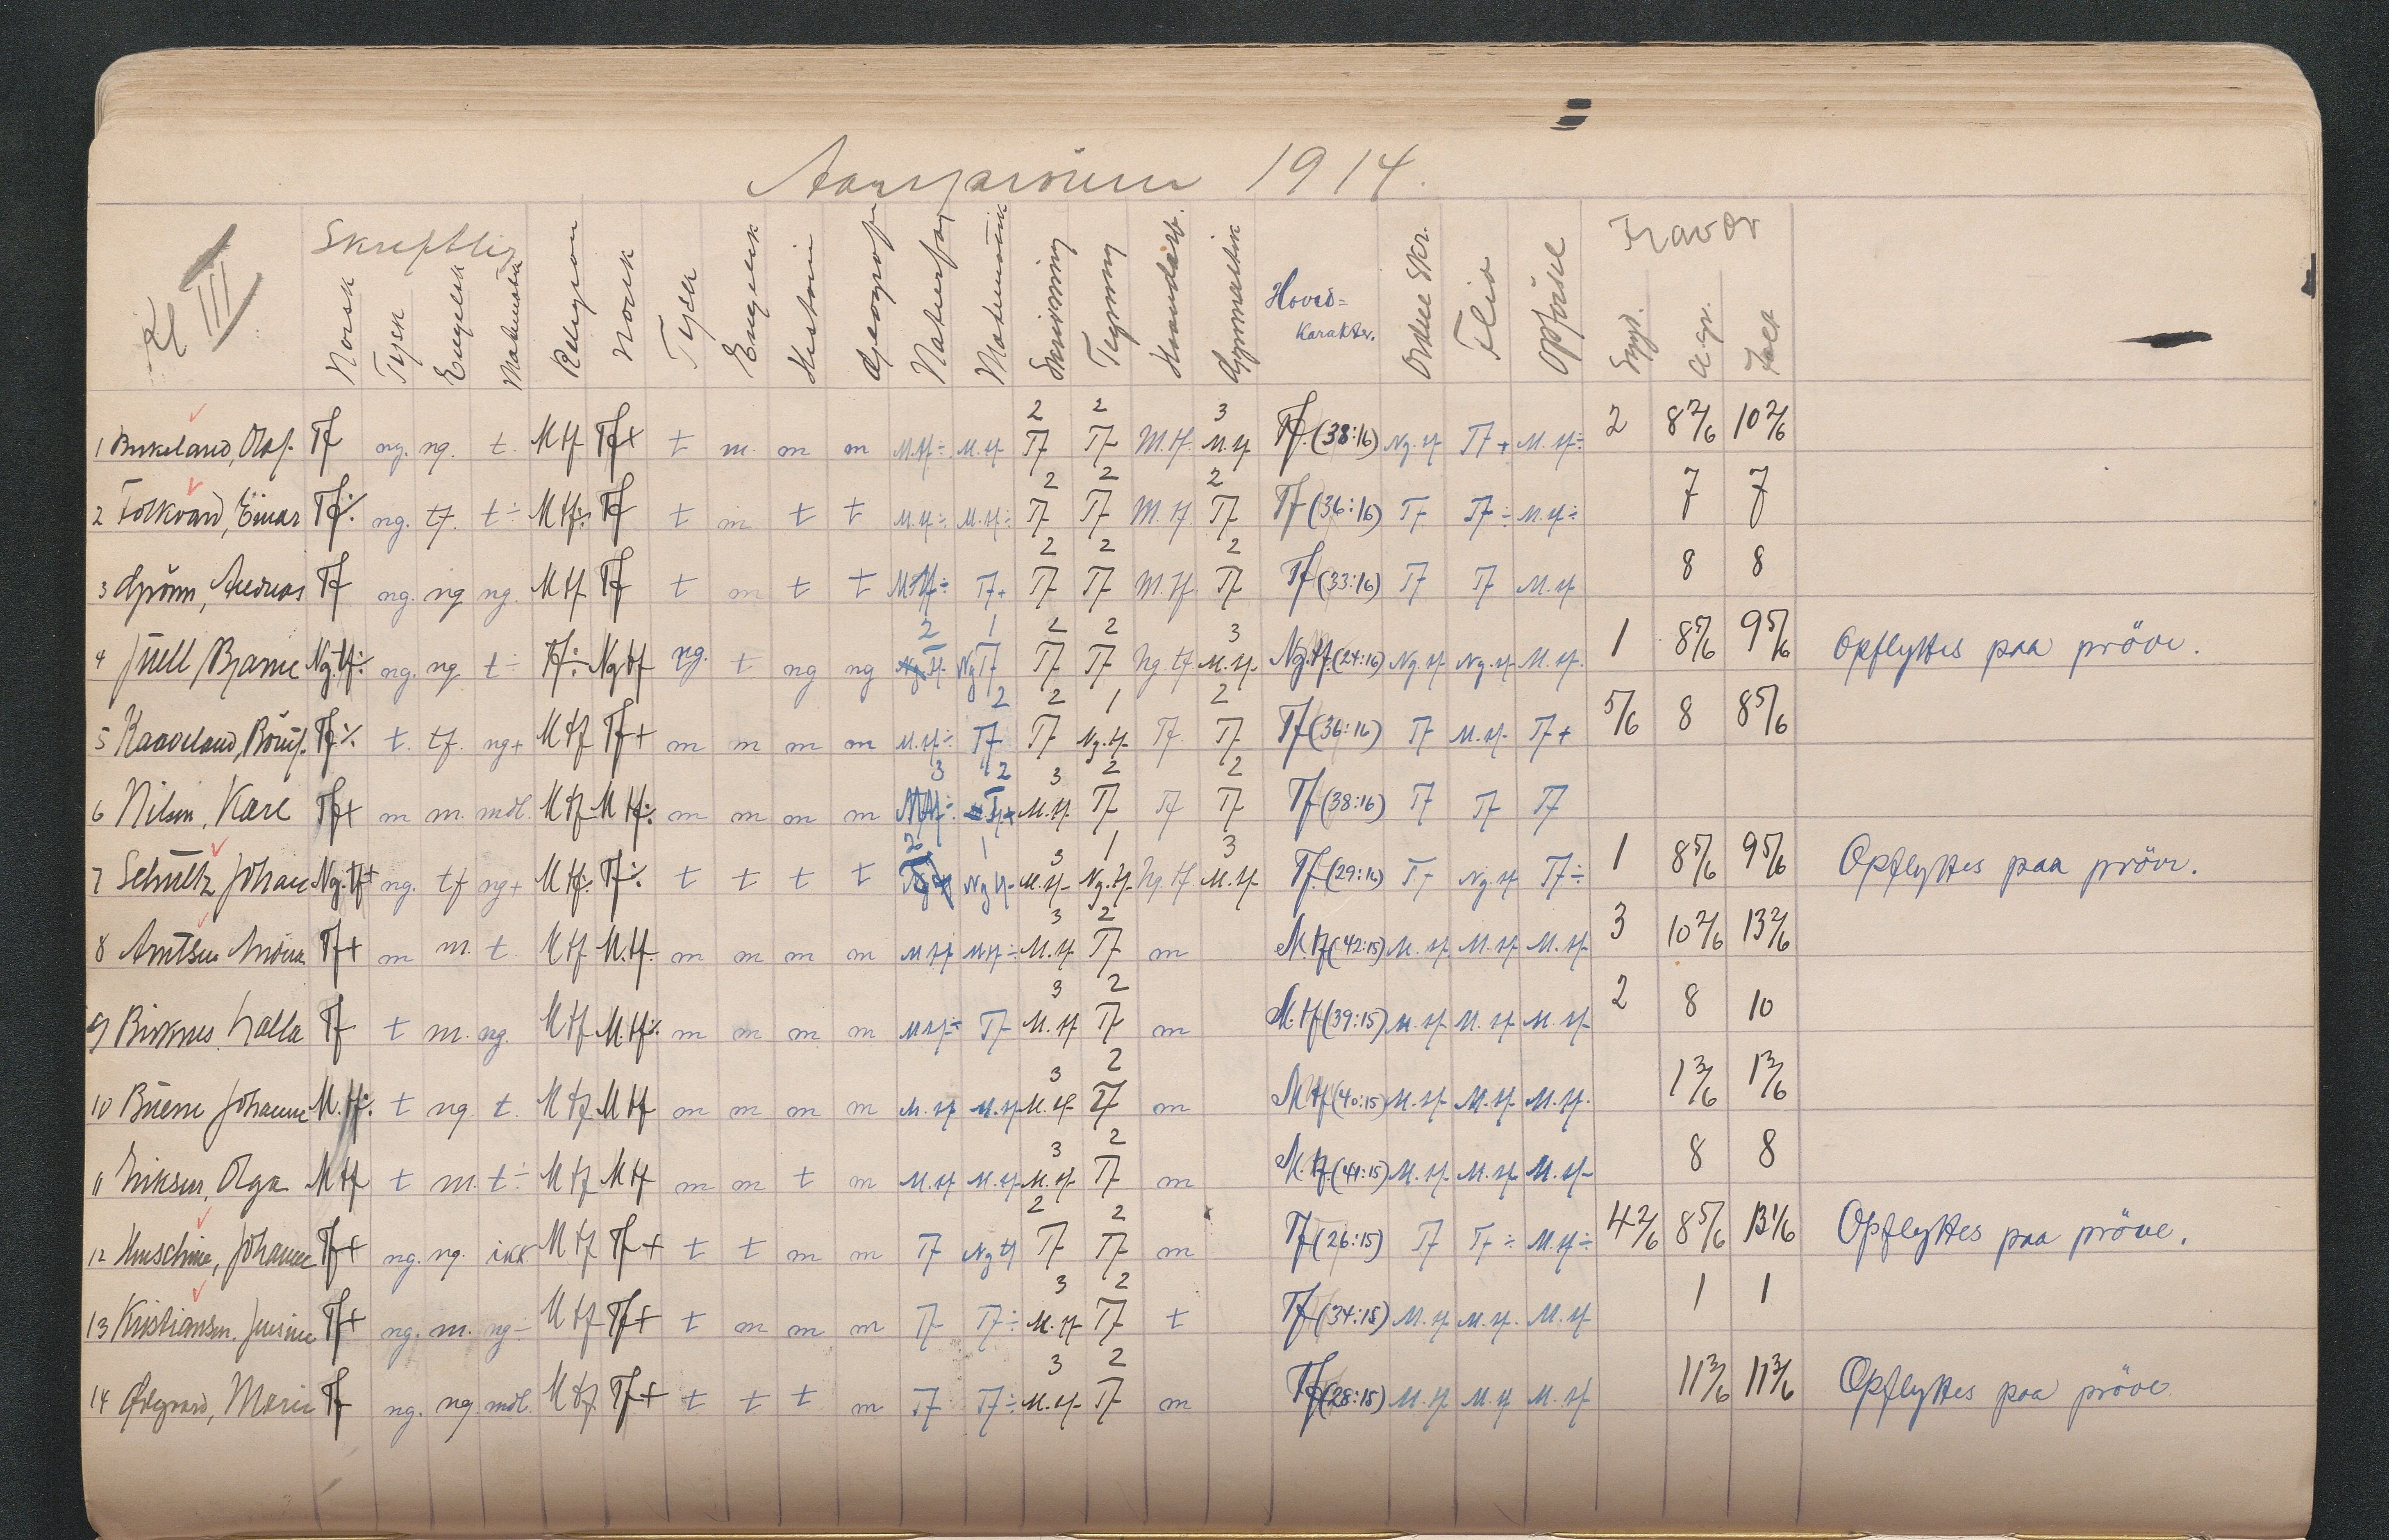 1914.
Kl III
Skriftlig
Norsk Tysk Engelsk Matematik Religion Norsk Tysk Engelsk Historie Geografi Naturfag Matematik Skrivning Tegning Haandarb. Gymnastik Hoved= Karakter. Orden Skr. Flid Opførsel Fravær Sygd. a.gr. Ialt
2 2 3
1 Birkeland, Olaf. Tf ng. ng. t. Mtf Tf+ t m. m m M.tf÷ M.tf Tf Tf M.tf. M.tf Tf. (38:16) Ng.tf Tf+ M.tf÷ 2 8 2/6 10 2/6
2 2 2
2 Folkvard, Einar Tf÷ ng. tf. t÷ Mtf÷ Tf t m t t M.tf÷ M.tf÷ Tf Tf M.tf. Tf Tf (36:16) Tf Tf÷ M.tf÷ 7 7
2 2 2
3 Grönn, Andreas Tf ng. ng ng. Mtf Tf t m t t Mtf÷ Tf+ Tf Tf M.tf. Tf Tf (33:16) Tf Tf M.tf 8 8
2 1 2 2 3
4 Juell Bjarne Ng.tf÷ ng. ng t÷ Tf÷ Ng tf ng. t ng ng Tf Tf Ng tf M.tf. Ng.tf. (24:16) Ng.tf Ng.tf M.tf. 1 8 5/6 9 5/6 Opflyttes paa pröve.
2 2 1 2
5 Kaaveland, Tf÷ t. tf. ng+ Mtf Tf+ m m m m M.tf÷ Tf Tf Ng.tf. Tf Tf Tf (36:16) Tf M.tf. Tf+ 5/6 8 8 5/6
3 2 3 2 2
6 Nilsen, Kåre Tf+ m m. mdl. Mtf M tf÷ m m m m Mtf÷ M.tf. Tf Tf Tf Tf (38:16) Tf Tf Tf
2 1 3 1 3
7 Schultz Johan Ng.tf+ ng. tf ng+ Mtf÷ Tf÷ t t t t Ng tf M.tf. Ng.tf. Ng tf M.tf. Tf. (29:16) Tf Ng.tf Tf÷ 1 8 5/6 9 5/6 Opflyttes paa pröve.
3 2
8 Arntsen Tf+ m m. t. Mtf M.tf. m m m m M tf M tf÷ M.tf Tf m M.tf (42:15) M.tf M.tf. M.tf. 3 10 2/6 13 2/6
3 2
9 Birknes, Halla Tf t m. ng. Mtf M.tf÷ m m m m M tf÷ Tf M.tf Tf m M.tf (39:15) M.tf. M.tf M.tf. 2 8 10
3 2
10 Johanne M.tf÷ t ng. t. Mtf M tf m m m m M.tf M.tf M.tf Tf m M tf (40:15) M.tf. M.tf. M.tf. 1 3/6 1 3/6
3 2
11 Eriksen, Olga Mtf t m. t÷ Mtf Mtf m m t m M.tf M.tf M.tf Tf m M.tf. (41:15) M.tf. M.tf. M.tf. 8 8
2 2
12 Johanne Tf+ ng. ng. ikk. Mtf Tf+ t t m m Tf Ng tf Tf Tf m Tf (26:15) Tf Tf÷ M.tf÷ 4 2/6 8 5/6 13 1/6 Opflyttes paa pröve.
3 2
13 Kristiansen, Tf+ ng. m. ng÷ Mtf Tf+ t m m m Tf Tf÷ M.tf Tf t Tf (34:15) M.tf M.tf. M.tf 1 1
3 2
14 Ødegaard, Marie Tf ng. ng mdl. Mtf Tf+ t t t m Tf Tf÷ M.tf. Tf m Tf (28:15) M.tf M.tf M.tf 11 3/6 11 3/6 Opflyttes paa pröve